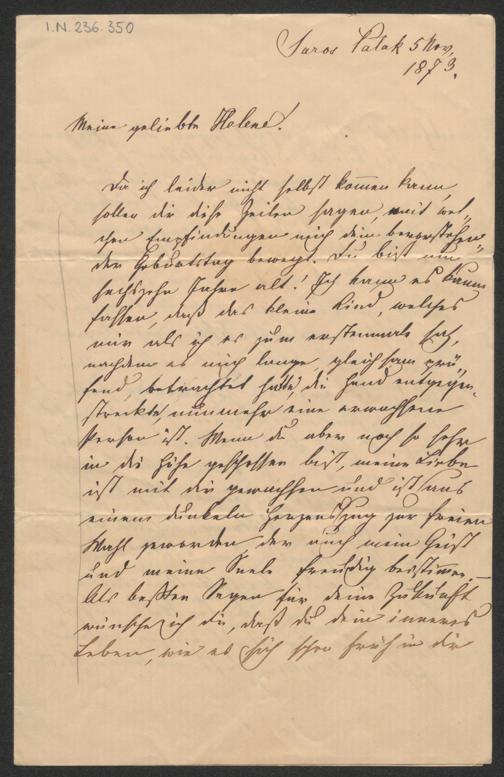 I.N. 236.350
Saros Patak 5 Nov.
1873.
Meine geliebte Helene!
Da ich leider nicht selbst kommen kann,
sollen dir diese Zeilen sagen, mit wel-
chen Empfindungen mich dein bevorstehen-
der Geburtstag bewegt. Du bist nun
sechszehn Jahre alt! Ich kann es kaum
fassen, daß das kleine Kind, welches
mir als ich es zum erstenmale sah,
nachdem es mich lange, gleichsam prü-
fend, betrachtet hatte, die Hand entgegen-
streckte nunmehr eine erwachsene
Person ist. Wenn du aber noch so sehr
in die Höhe geschossen bist, meine Liebe
ist mit dir gewachsen und ist aus
einem dunkeln Herzenszug zur freien
Wahl geworden der auch mein Geist
und meine Seele freudig beistimmen.
Als besten Segen für deine Zukunft
wünsche ich dir, daß du dein inneres
Leben, wie es sich schon früh in dir